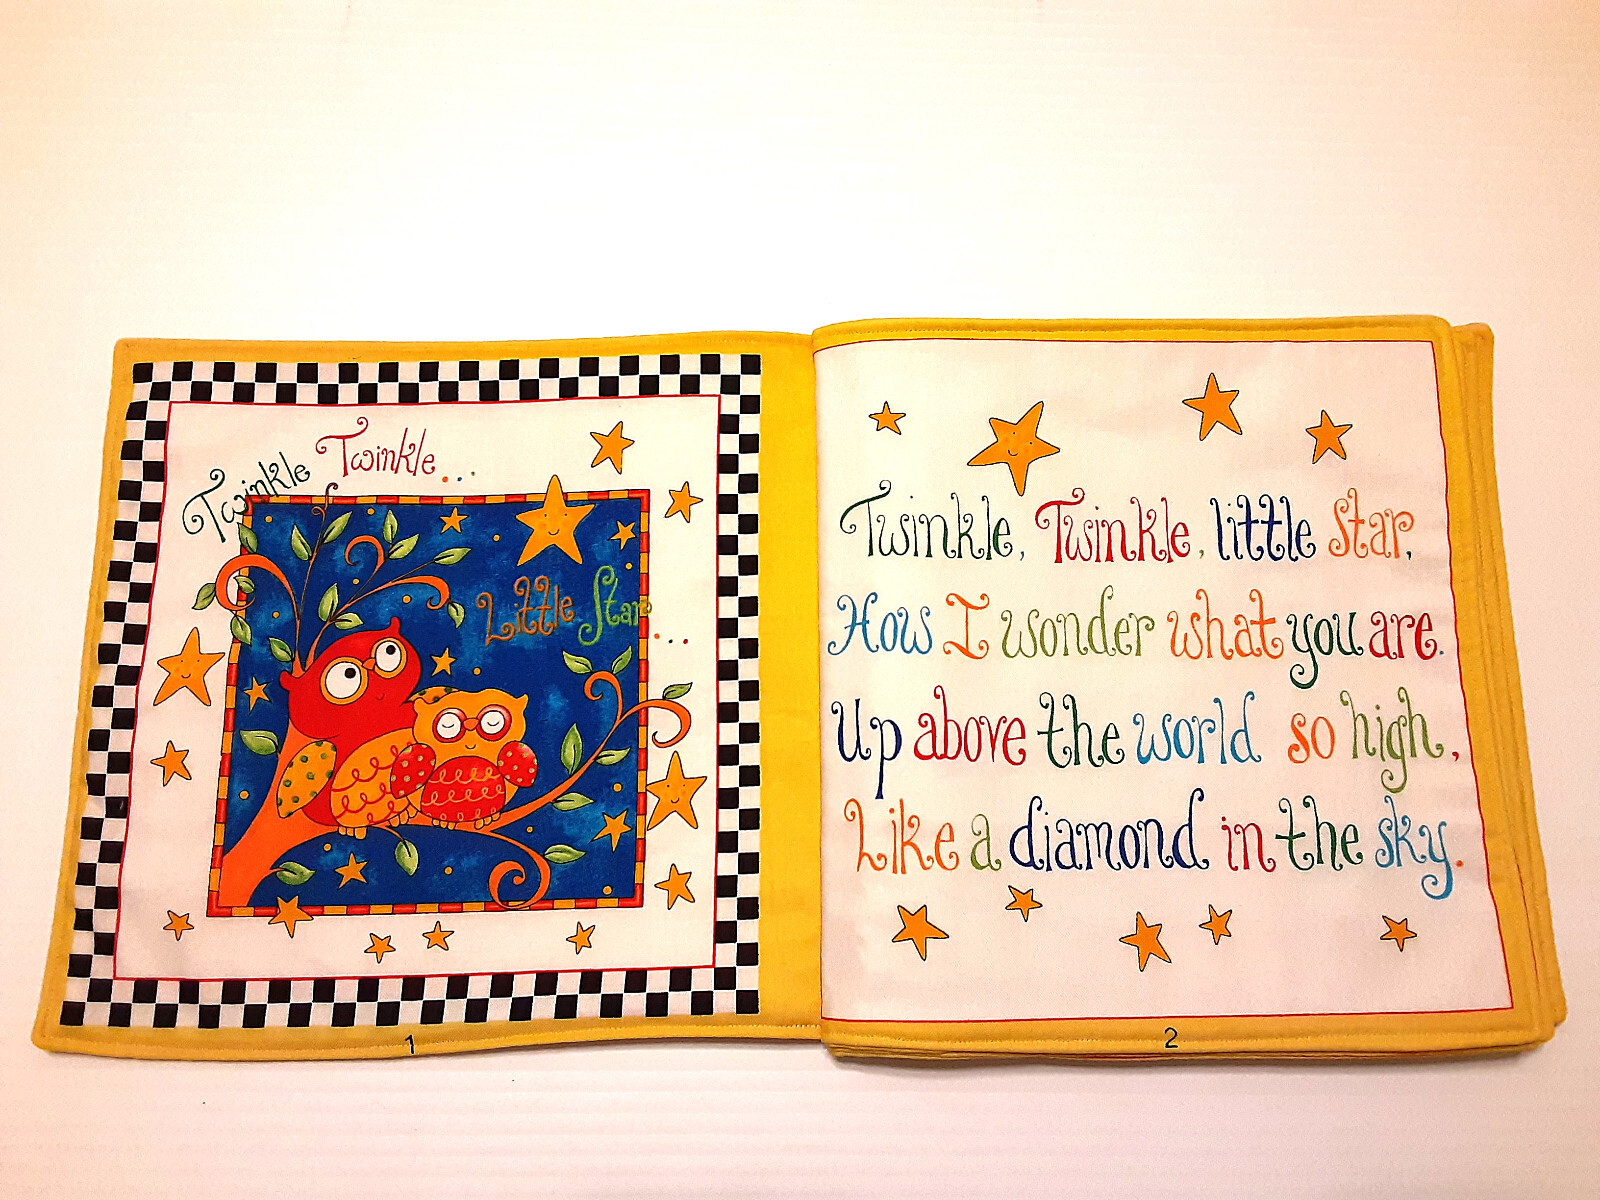 Twinkle Twinkle...
Little Star...
1
Twinkle, Twinkle, little star,
How I wonder what you are.
Up above the world so high,
Like a diamond in the sky.
2